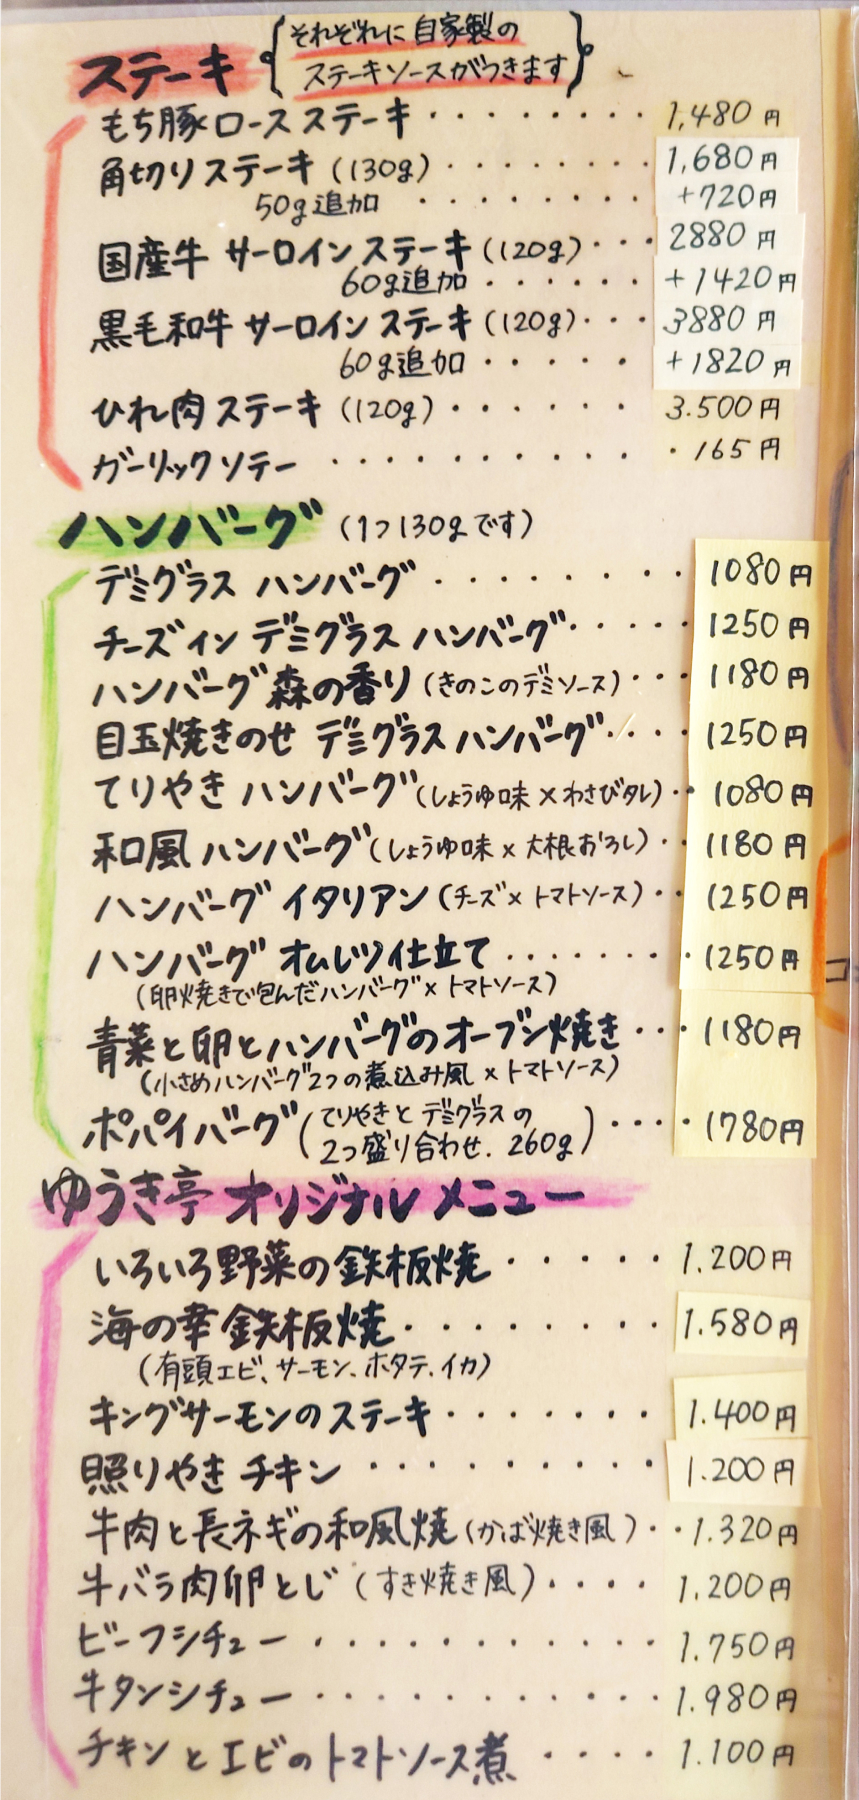 ステーキ
それぞれに自家製の
ステーキソースがつきます
もち豚ロースステーキ・・・・・・・・1,480円
角切りステーキ(130g)・・・・・・・・1,680円
50g追加・・・・・・・・+720円
国産牛 サーロインステーキ(120g)・・・2880円
60g追加・・・・・・+1420円
黒毛和牛 サーロインステーキ(120g)・・・3880円
60g追加・・・・・+1820円
ひれ肉ステーキ(120g)・・・・・・3.500円
ガーリックソテー・・・・・・・・・・・165円
ハンバーグ(1つ130gです)
デミグラス ハンバーグ・・・・・・・・1080円
チーズイン デミグラス ハンバーグ・・・・・1250円
ハンバーグ森の香り(きのこのデミソース)・・・1180円
目玉焼きのせ デミグラスハンバーグ・・・・1250円
てりやき ハンバーグ(しょうゆ味×わさびタレ)・・1080円
和風ハンバーグ(しょうゆ味×大根おろし)・・1180円
ハンバーグ イタリアン(チーズ×トマトソース)・・1250円
ハンバーグ オムレツ仕立て・・・・・・・・1250円
(卵焼きで包んだハンバーグ×トマトソース)
青菜と卵とハンバーグのオーブン焼き・・・1180円
(小さめハンバーグ2つの煮込み風×トマトソース)
ポパイバーグ(てりやきとデミグラスの
2つ盛り合わせ.260g)・・・・1780円
ゆうき亭 オリジナルメニュー
いろいろ野菜の鉄板焼・・・・・・1.200円
海の幸鉄板焼・・・・・・・・・1.580円
(有頭エビ、サーモン、ホタテ、イカ)
キングサーモンのステーキ・・・・・・・・1.400円
照りやきチキン・・・・・・・・・・1.200円
牛肉と長ネギの和風焼(かば焼き風)・・1.320円
牛バラ肉卵とじ(すき焼き風)・・・・1.200円
ビーフシチュー・・・・・・・・・・・1.750円
牛タンシチュー・・・・・・・・・・・1.980円
チキンとエビのトマトソース煮・・・・1.100円